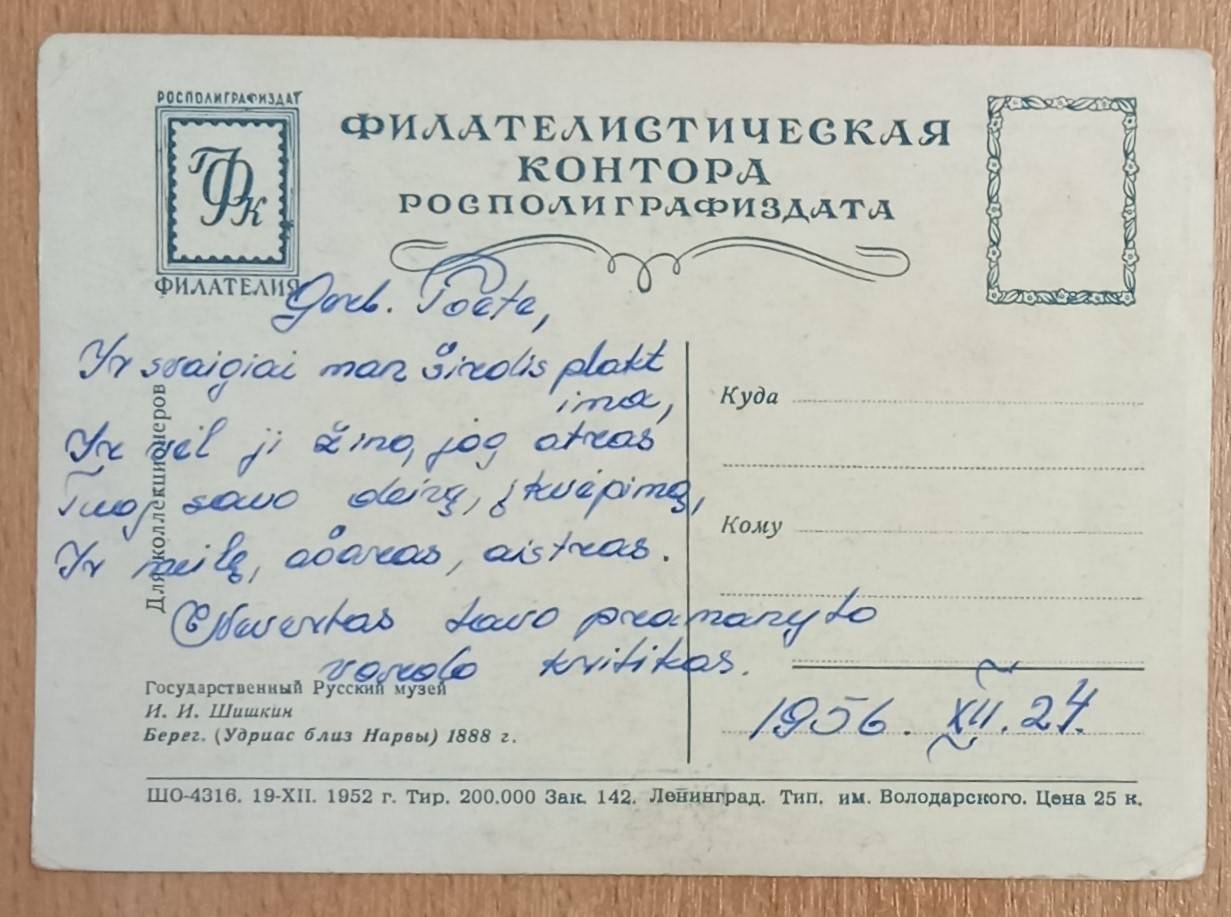 РОСПОЛИГРАФИЗДАТ
ГФК
ФИЛАТЕЛИЯ
ФИЛАТЕЛИСТИЧЕСКАЯ
КОНТОРА
РОСПОЛИГРАФИЗДАТА
Gerb. Poete,
Ir svaigiai man širdis plakt
ima,
Ir vėl ji žino, jog atras
Tuoj savo dainą, įkvėpimą,
Ir meilę, ašaras, aistras.
Nevertas tavo pramanyto
vardo kritikas.
1956. XII. 24.
Куда
Кому
Для коллекционеров
Государственный Русский музей
И. И. Шишкин
Берег. (Удриас близ Нарвы) 1888 г.
ШО-4316. 19-XII. 1952 г. Тир. 200.000 Зак. 142. Ленинград. Тип. им. Володарского. Цена 25 к.